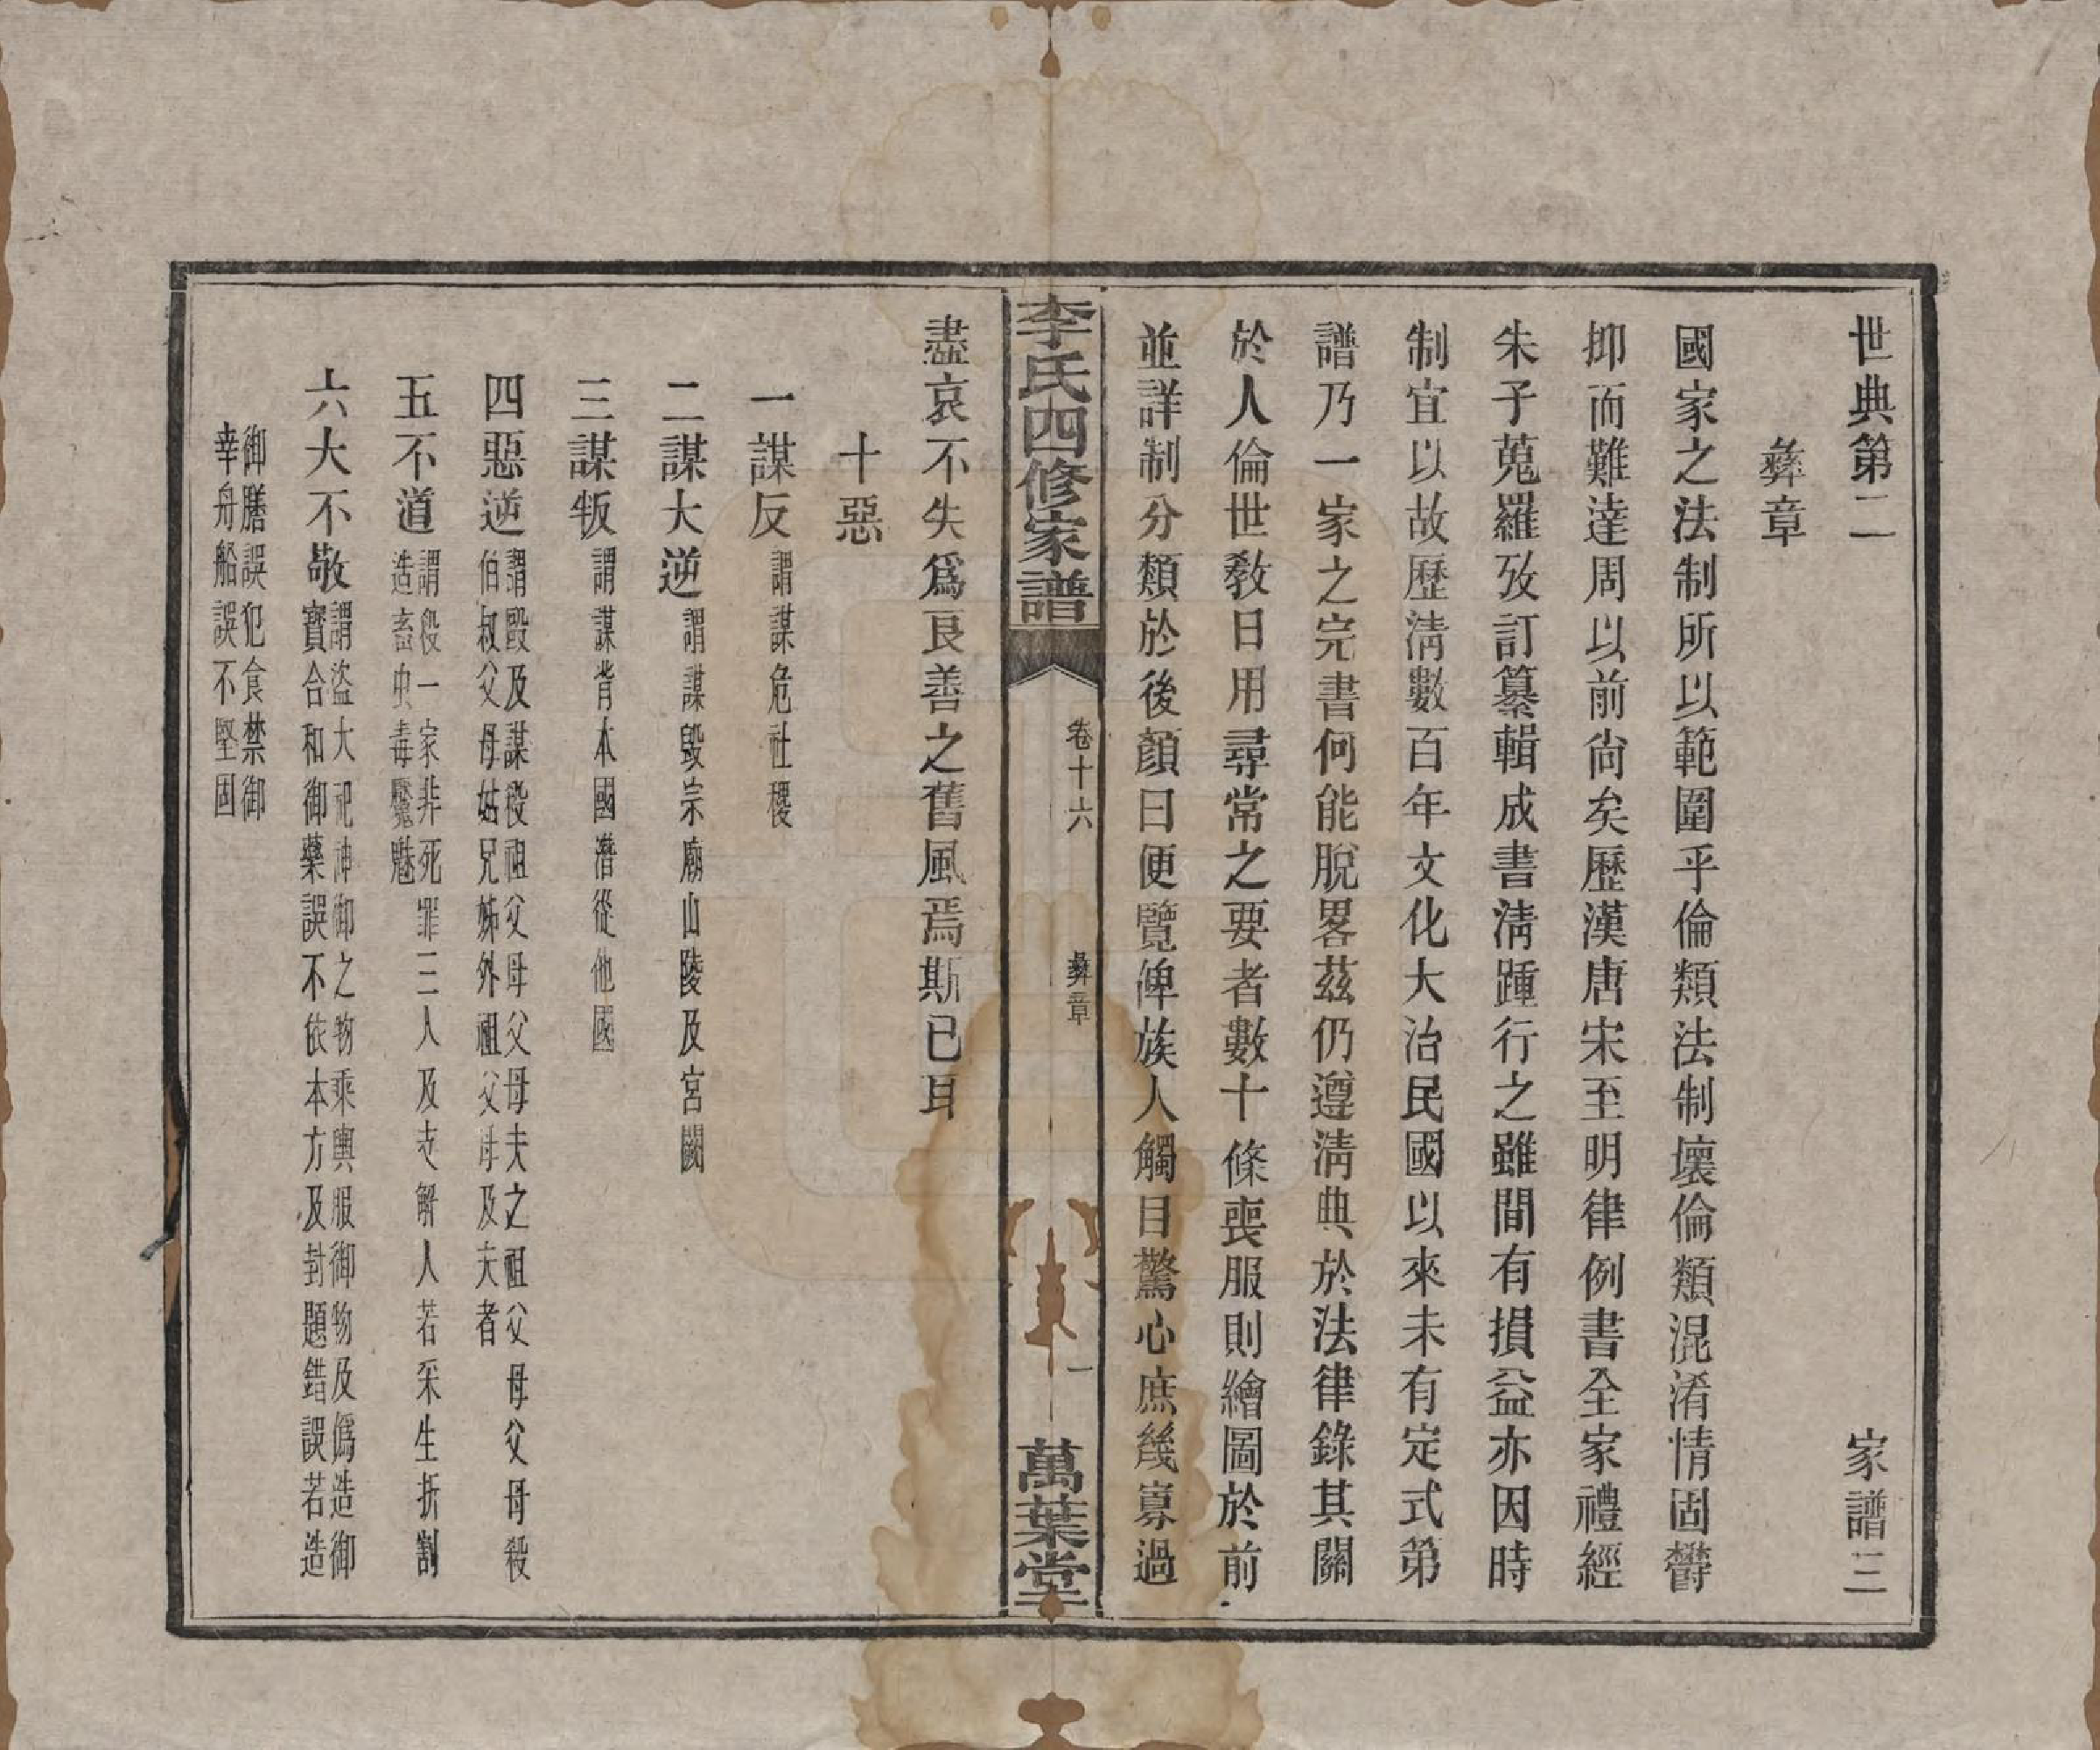 世典第二　家譜三
彝章
國家之法制所以範圍乎倫類法制壞倫類混淆情固鬱
抑而難達周以前尙矣歷漢唐宋至明律例書全家禮經
朱子蒐羅攷訂纂輯成書清踵行之雖間有損益亦因時
制宜以故歷清數百年文化大治民國以來未有定式第
譜乃一家之完書何能脫畧茲仍遵清典於法律錄其關
於人倫世教日用尋常之要者數十條喪服則繪圖於前
並詳制分類於後顏曰便覽俾族人觸目驚心庶幾寡過
李氏四修家譜
卷十六
彝章
一
萬葉堂
盡哀不失爲良善之舊風焉斯已耳
十惡
一謀反謂謀危社稷
二謀大逆謂謀毀宗廟山陵及宮闕
三謀叛謂謀背本國潛從他國
四惡逆謂毆及謀殺祖父母父母夫之祖父母父母殺
伯叔父母姑兄姊外祖父母及夫者
五不道謂殺一家非死罪三人及支解人若采生折割
造畜虫毒魘魅
六大不敬謂盜大祀神御之物乘輿服御物及偽造御
寳合和御藥誤不依本方及封題錯誤若造
御膳誤犯食禁御
幸舟船誤不堅固